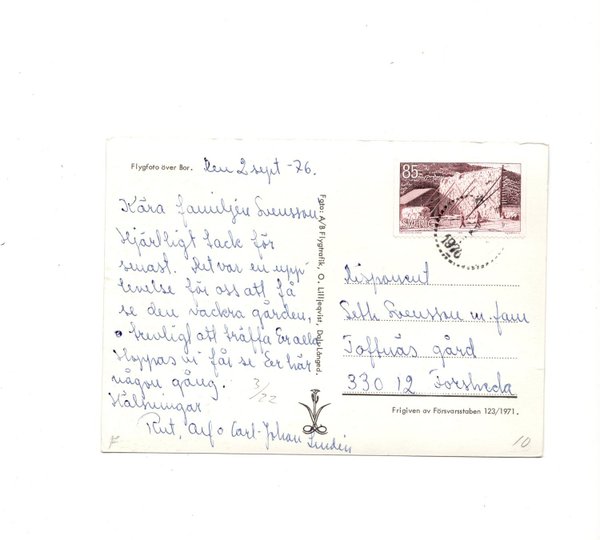 Flygfoto över Bor.
den 2 sept -76.
Kära familjen Svensson.
Hjärtligt tack för
senast. Det var en upp
levelse för oss att få
se den vackra gården.
o trevligt att träffa Er alla
Hoppas vi får se Er här
någon gång.
Hälsningar
Rut, Arf o Carl-Johan Lindén
3/22
F
Foto: A/B Flygtrafik, O. Lilljeqvist, Dals-Långed.
85
SVERIGE
1976
Disponent
Seth Svensson m. fam
Toftnäs gård
330 12 Forsheda
Frigiven av Försvarsstaben 123/1971.
10